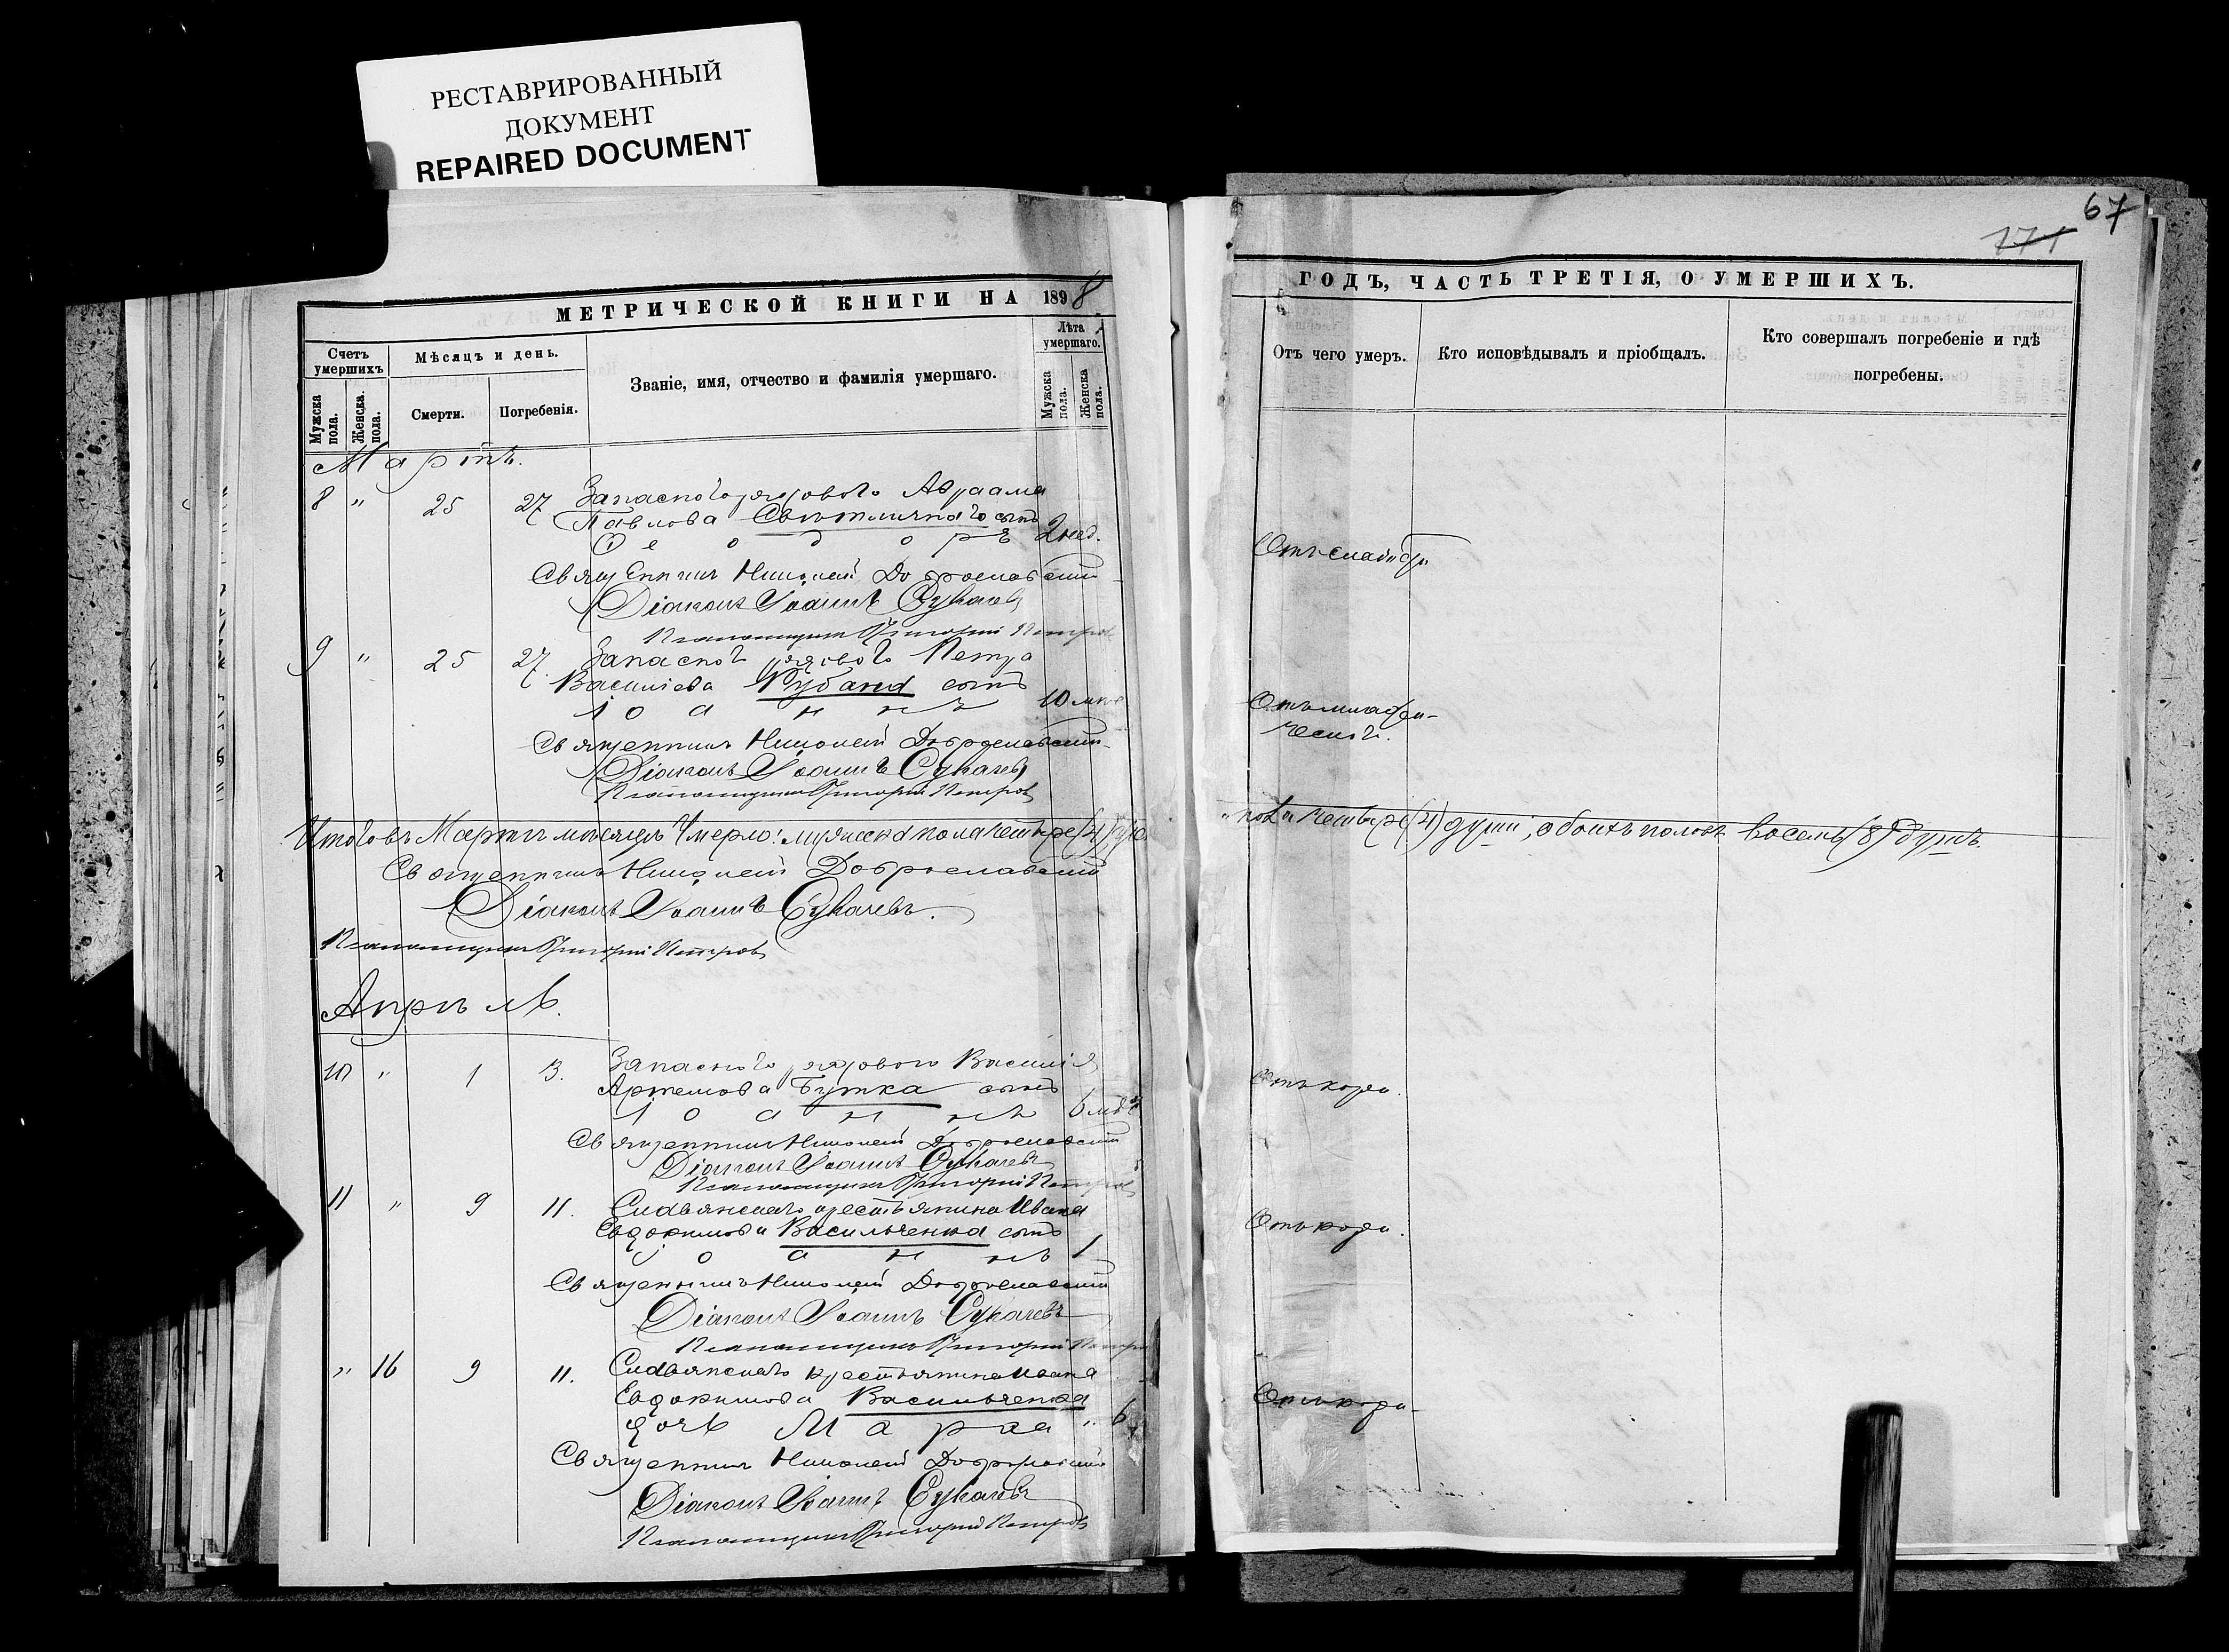 РЕСТАВРИРОВАННЫЙ
ДОКУМЕНТ
REPAIRED DOCUMENT
МЕТРИЧЕСКОЙ КНИГИ НА 1898
Счетъ умершихъ
Мужска пола.
Женска. пола.
Мѣсяцъ и день.
Смерти.
Погребенія.
Званіе, имя, отчество и фамилія умершаго.
Лѣта умершаго.
Мужска пола.
Женска пола.
Мартъ.
8 " 25 27 Запасного рядового Авраама
Павлова Свѣтличнаго сынъ
Ѳеодоръ 2 нед.
Священникъ Николай Доброславскій
Діаконъ Іоаннъ Сукачевъ
Псаломщикъ Григорій Петров
9 " 25 27 Запасного рядового Петра
Василіева Рубана сынъ
Іоаннъ 10 мце
Священникъ Николай Доброславскій
Діаконъ Іоаннъ Сукачевъ
Псаломщикъ Григорій Петров
Итого въ Мартѣ мѣсяцѣ умерло: мужска пола четыре (4)
Священникъ Николай Доброславскій
Діаконъ Іоаннъ Сукачевъ.
Псаломщикъ Григорій Петров
Апрѣль.
10 " 1 3. Запасного рядового Василія
Артемова Бутка сынъ
Іоаннъ 6
Священникъ Николай Доброславскій
Діаконъ Іоаннъ Сукачевъ
Псаломщикъ Григорій Петров
11 " 9 11. крестьянина Ивана
Евдокимова Васильченка сынъ
Іоаннъ 1
Священникъ Николай Доброславскій
Діаконъ Іоаннъ Сукачевъ
Псаломщикъ Григорій Петров
" 16 9 11. крестьянина Ивана
Евдокимова Васильченка
дочь Марѳа " 6
Священникъ Николай Доброславскій
Діаконъ Іоаннъ Сукачевъ
Псаломщикъ Григорій Петров
67
171
ГОДЪ, ЧАСТЬ ТРЕТІЯ, О УМЕРШИХЪ.
Отъ чего умеръ.
Кто исповѣдывалъ и пріобщалъ.
Кто совершалъ погребеніе и гдѣ
погребены.
Отъ слабости
Отъ младен-
ческой.
четыре (4) души, обоихъ половъ восемь (8) душъ.
Отъ кори.
Отъ кори.
Отъ кори